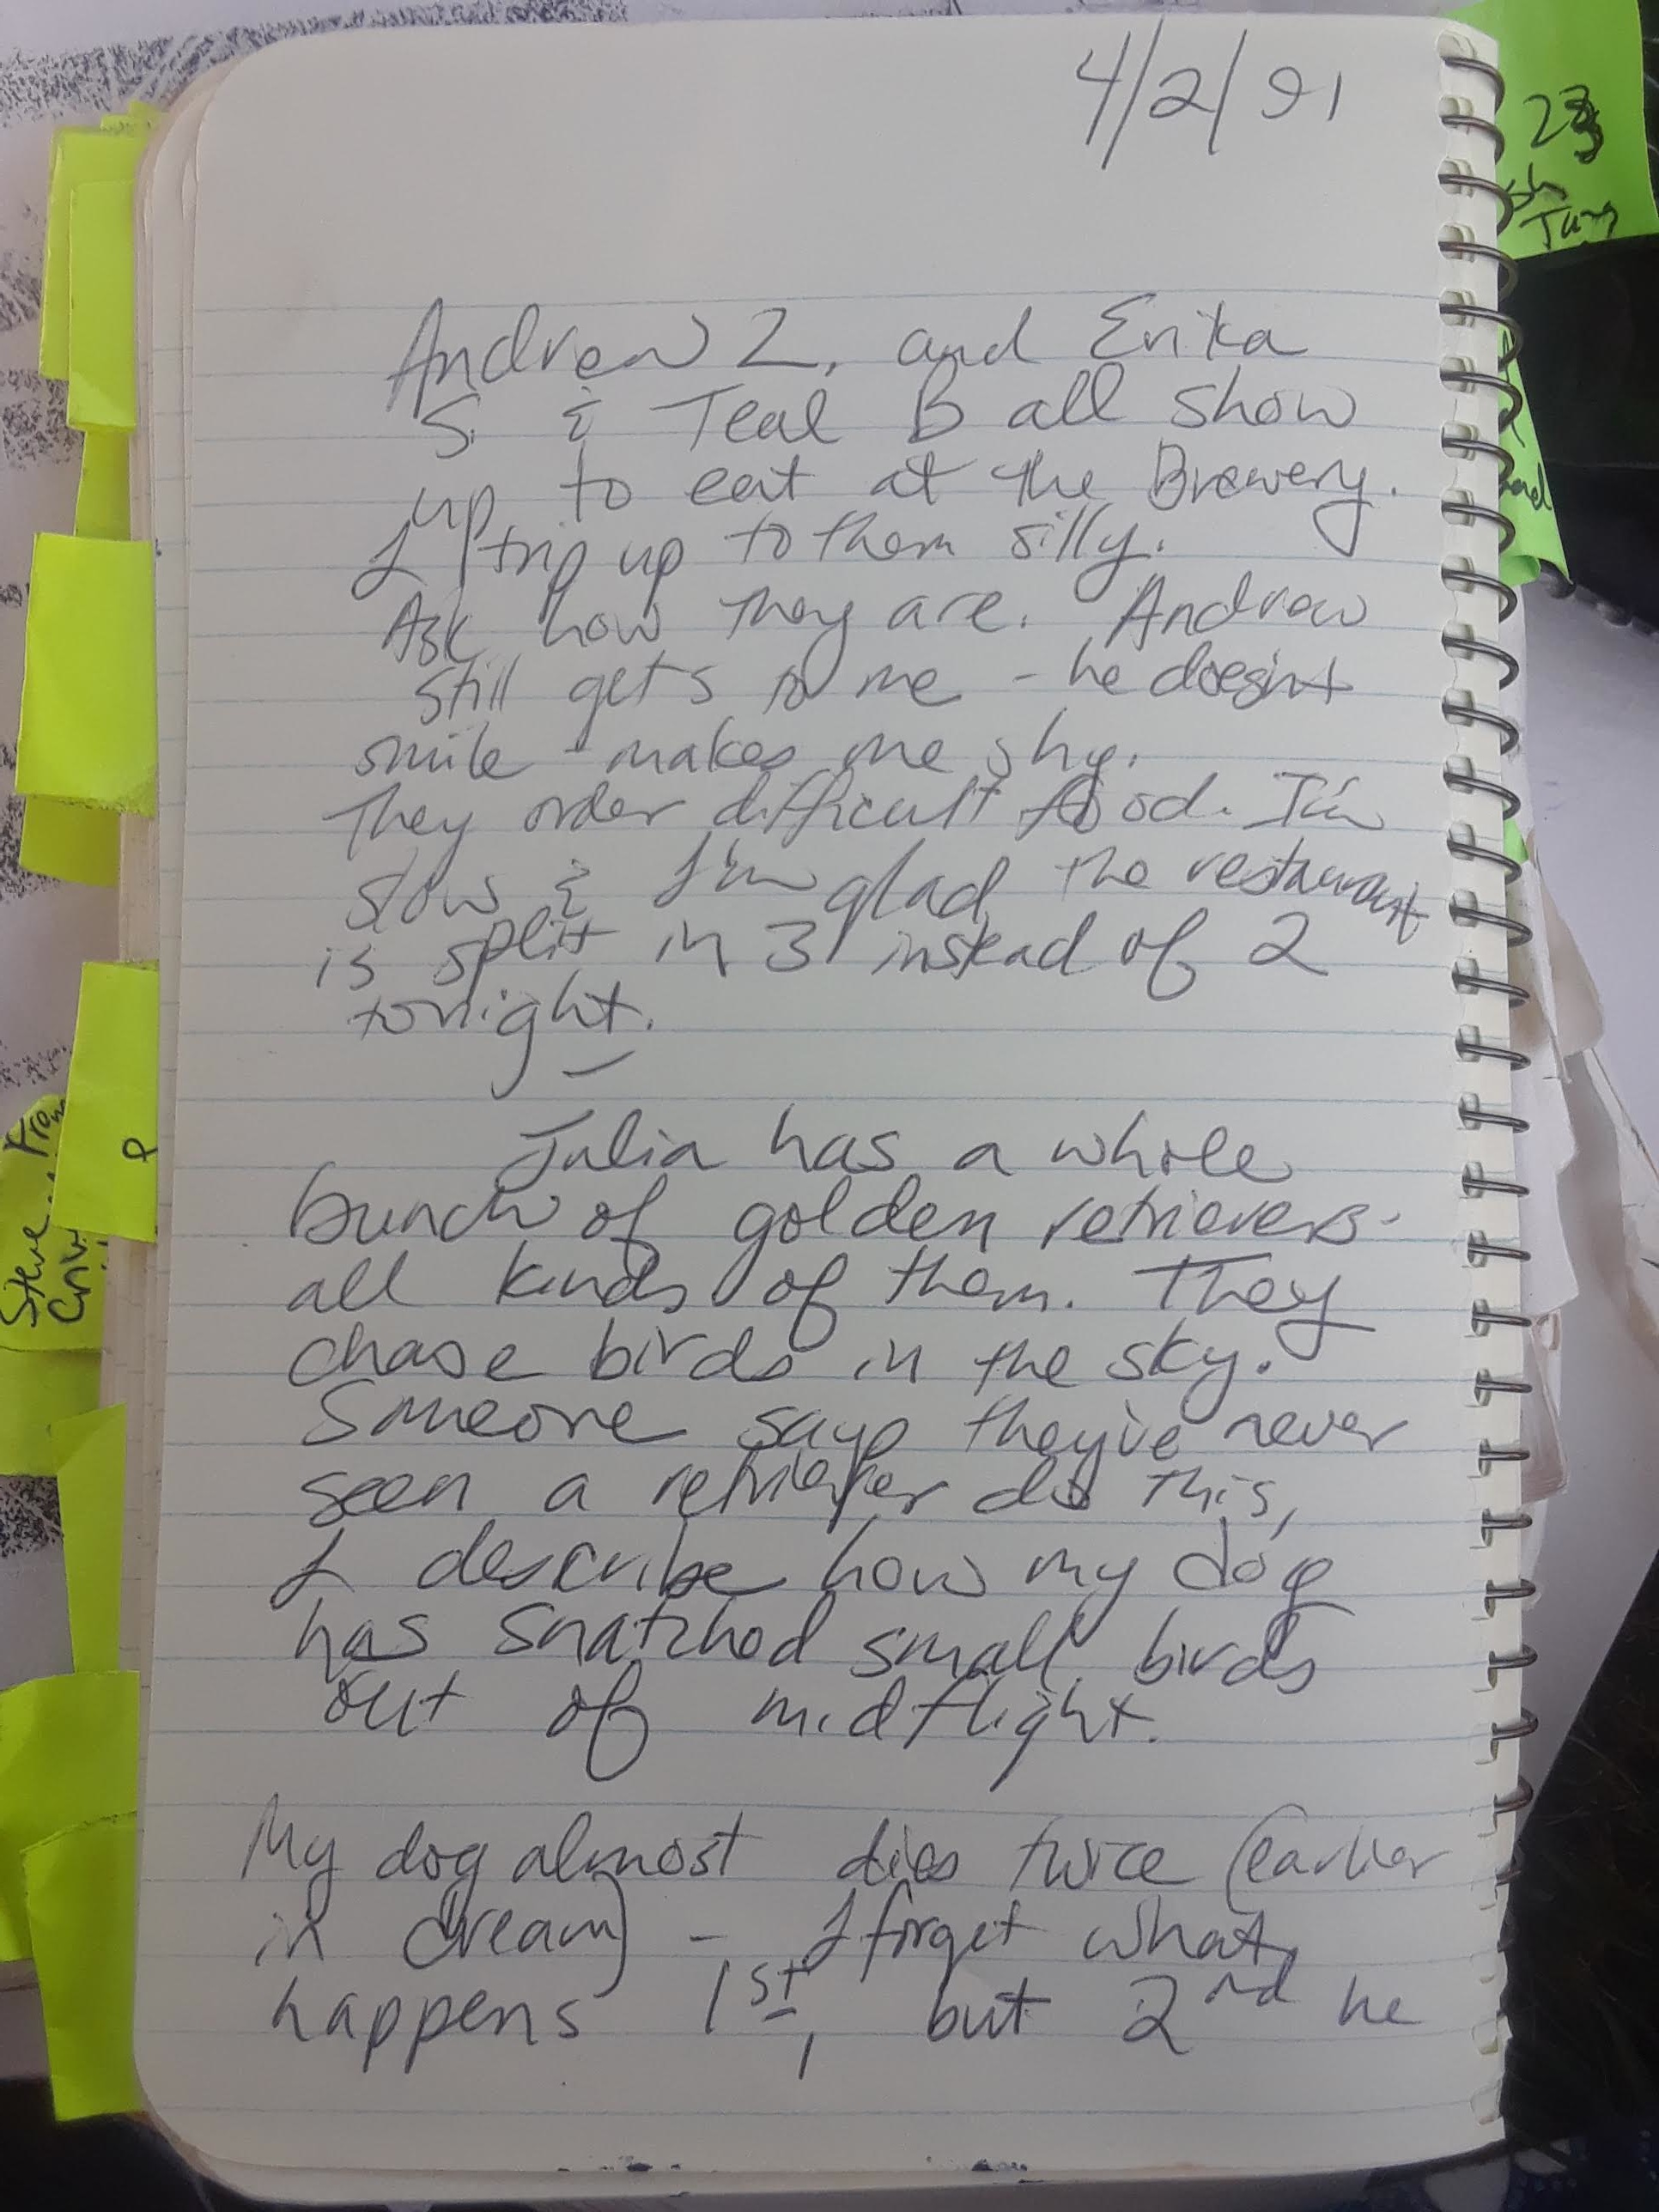 4/2/91
Andrew Z. and Erika
S. & Teal B all show
up to eat at the Brewery.
I trip up to them silly.
Ask how they are. Andrew
still gets to me - he doesn't
smile - makes me shy.
They order difficult food. I'm
slow & I'm glad the restaurant
is split in 3 instead of 2
tonight.
–
Julia has a whole
bunch of golden retrievers -
all kinds of them. They
chase birds in the sky.
Someone says they've never
seen a retriever do this,
I describe how my dog
has snatched small birds
out of midflight.
My dog almost dies twice (earlier
in dream) - I forget what
happens 1st, but 2nd he
23
Jung
From
Steve